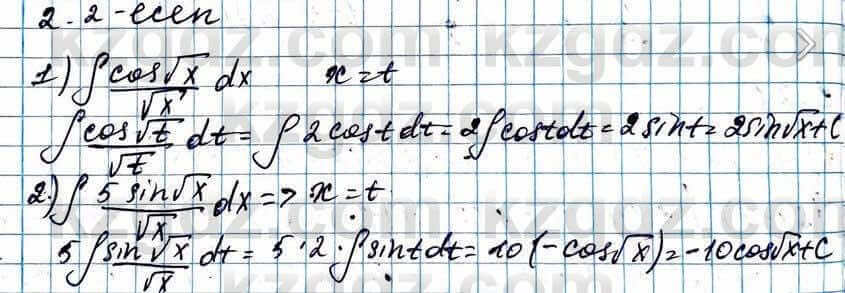 2.2-есеп
1) ∫ cos√x / √x dx   x=t
∫ cos√t / √t dt = ∫ 2 cos t dt = 2∫ cos t dt = 2 sin t = 2 sin√x + C
2.) ∫ 5 sin√x / √x dx => x=t
5 ∫ sin√x / √x dt = 5·2·∫ sin t dt = 10(-cos√x) = -10 cos√x + C
kzgdz.com kzgdz.com
kzgdz.com kzgdz.com